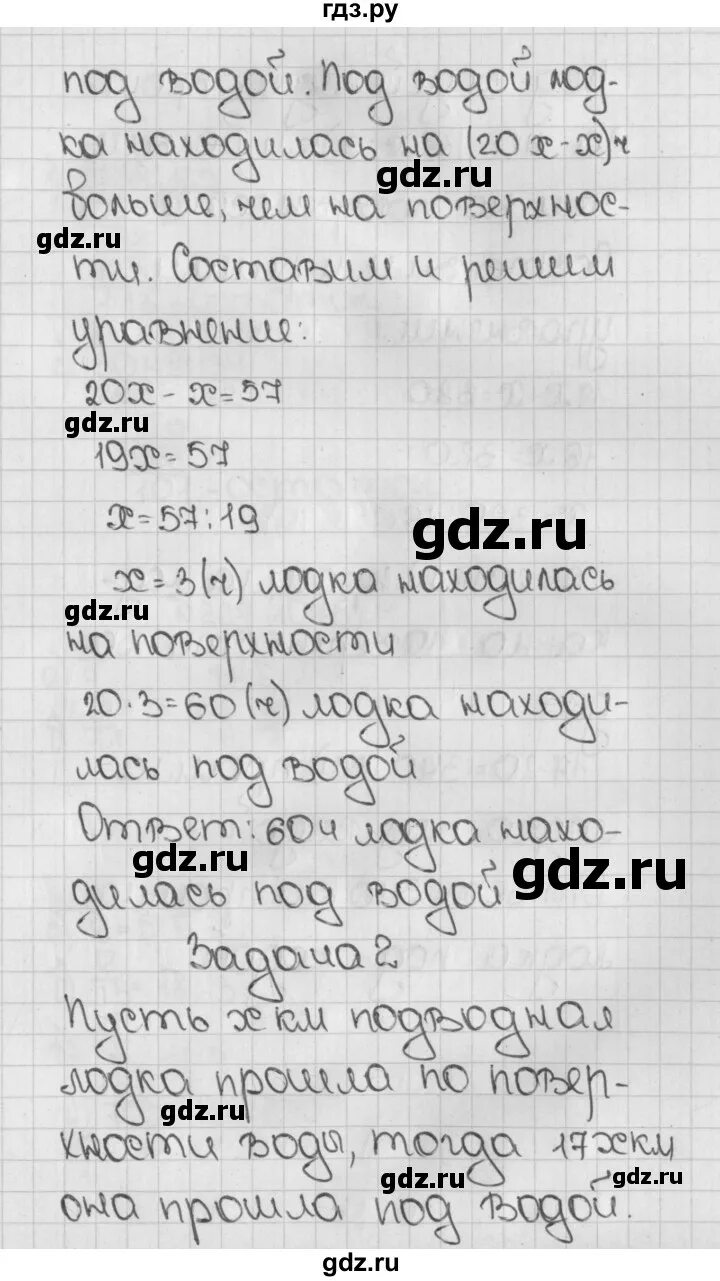 гдз.ру
под водой. Под водой лод-
ка находилась на (20х-х)ч
gdz.ru
больше, чем на поверхнос-
gdz.ru
ти. Составим и решим
уравнение:
20х - х = 57
gdz.ru
19х = 57
х = 57 : 19
gdz.ru
х = 3(ч) лодка находилась
gdz.ru
на поверхности
20·3=60(ч) лодка находи-
лась под водой
Ответ: 60ч лодка нахо-
gdz.ru
gdz.ru
дилась под водой
Задача 2
Пусть х км подводная
лодка прошла по повер-
gdz.ru
хности воды, тогда 17х км
gdz.ru
gdz.ru
она прошла под водой.
gdz.ru